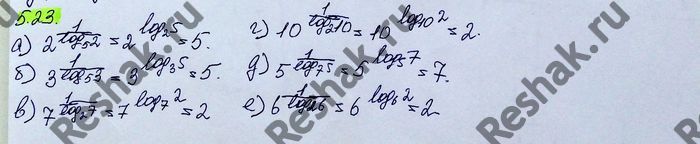 5.23.
а) 2^(1/log₅2) = 2^(log₂5) = 5.
б) 3^(1/log₅3) = 3^(log₃5) = 5.
в) 7^(1/log₂7) = 7^(log₇2) = 2
г) 10^(1/log₂10) = 10^(log₁₀2) = 2.
д) 5^(1/log₇5) = 5^(log₅7) = 7.
е) 6^(1/log₂6) = 6^(log₆2) = 2
Reshak.ru
Reshak.ru
Reshak.ru
Reshak.ru